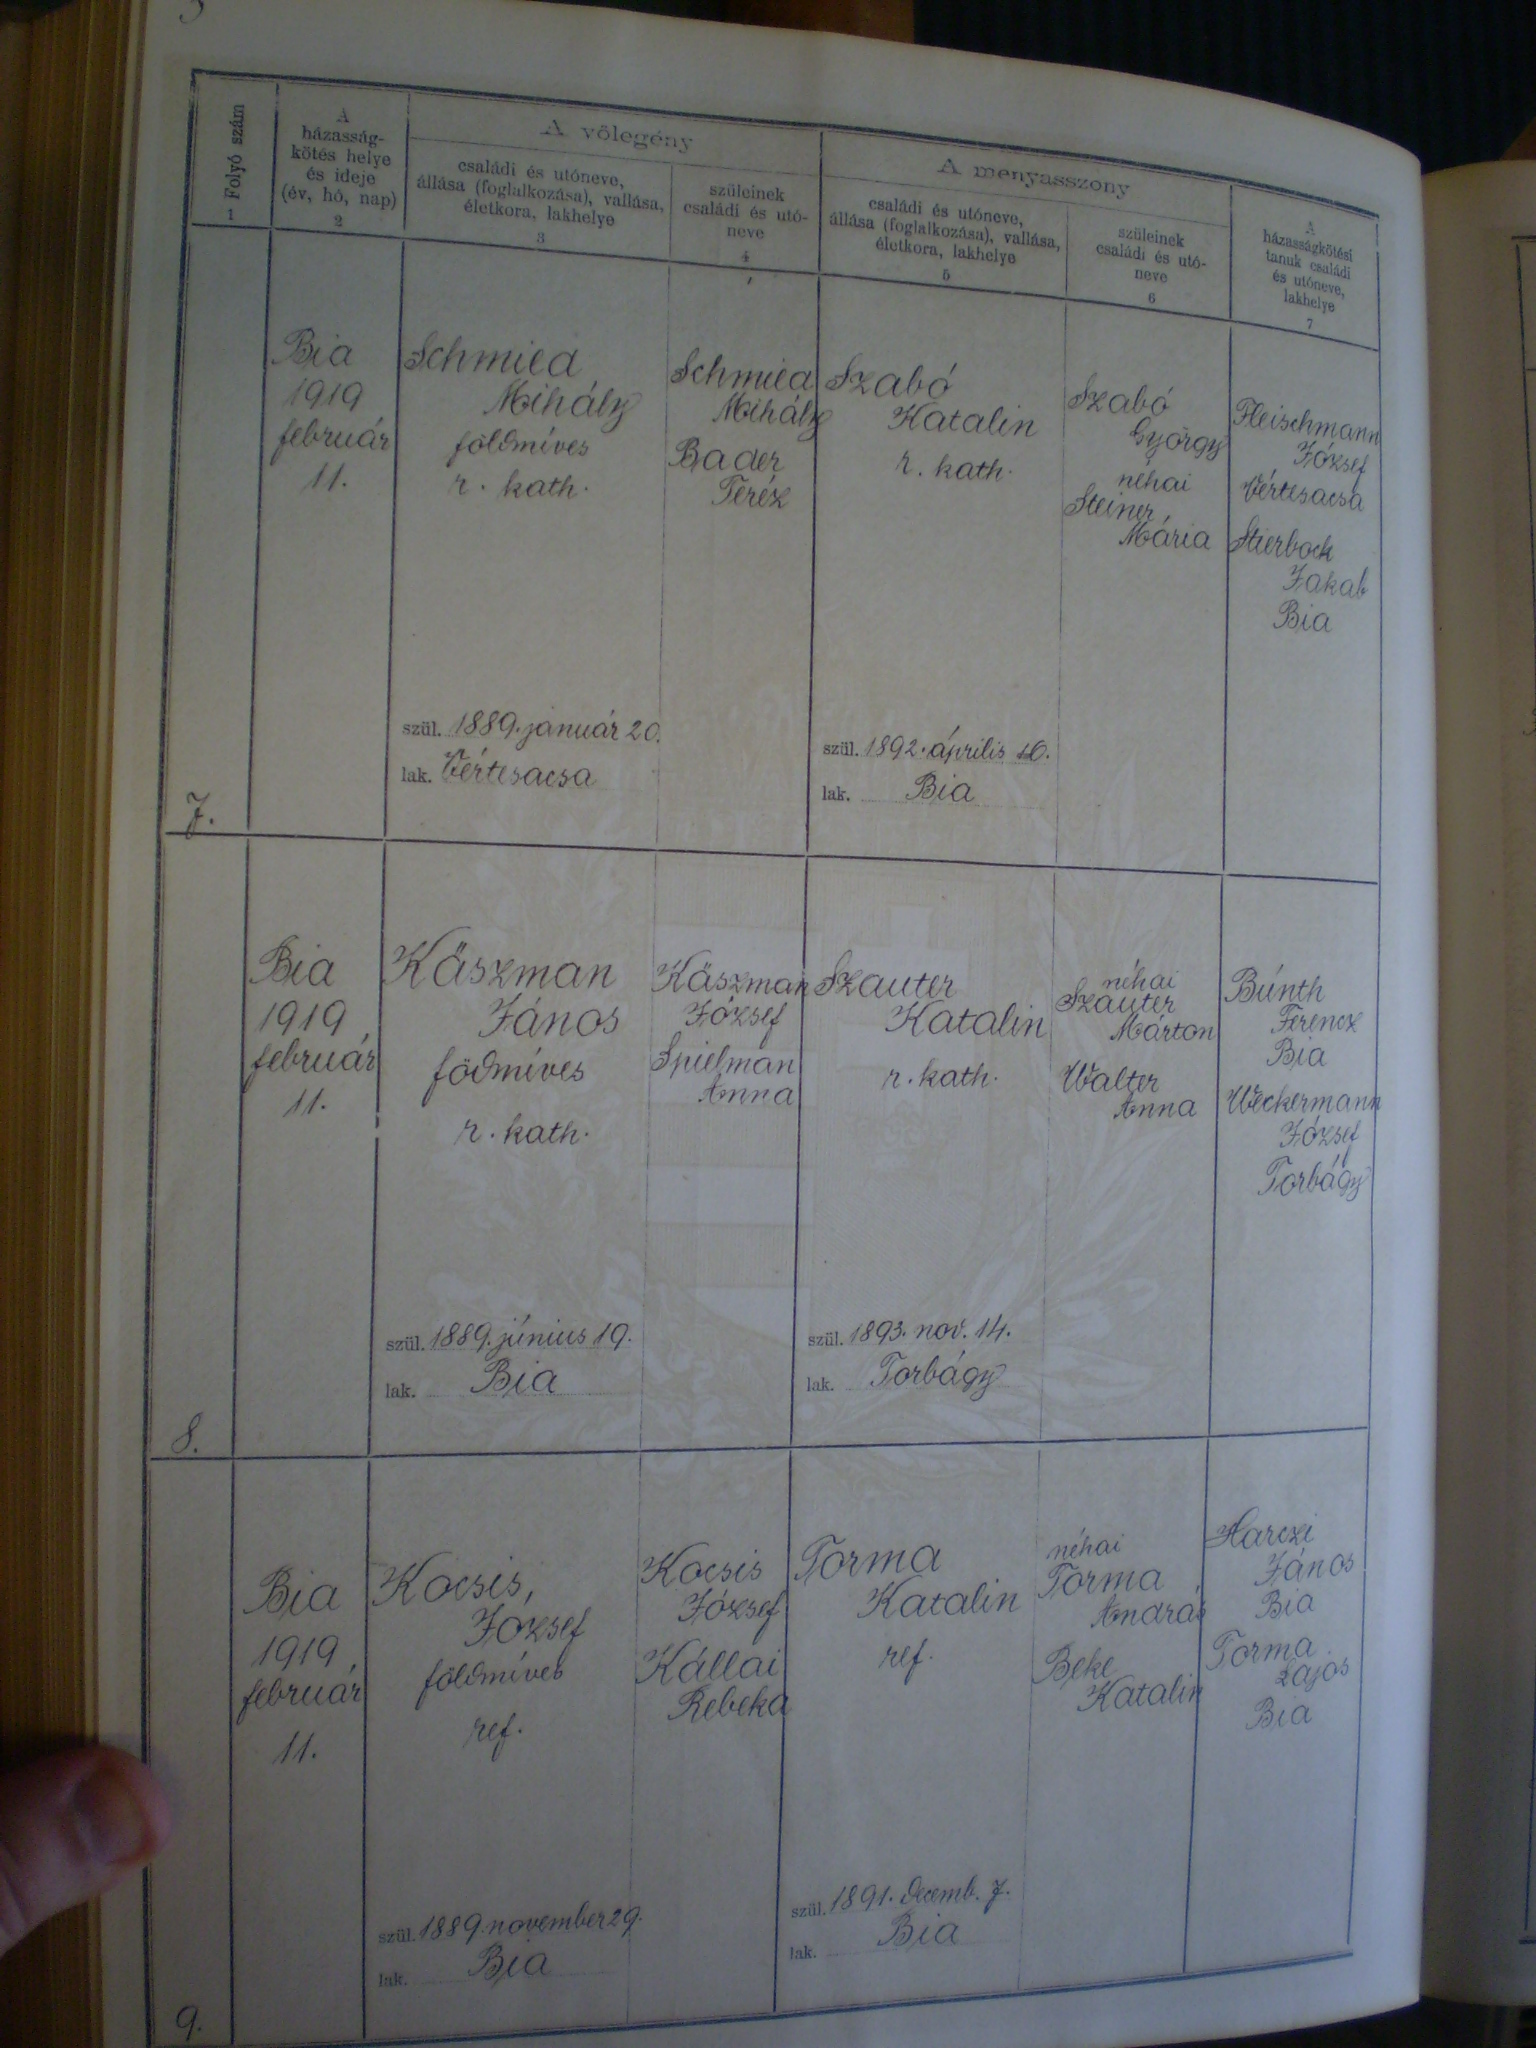 Folyó szám
1
A
házasság-
kötés helye
és ideje
(év, hó, nap)
2
A vőlegény
családi és utóneve,
állása (foglalkozása), vallása,
életkora, lakhelye
3
szüleinek
családi és utó-
neve
4
A menyasszony
családi és utóneve,
állása (foglalkozása), vallása,
életkora, lakhelye
5
szüleinek
családi és utó-
neve
6
A
házasságkötési
tanuk családi
és utóneve,
lakhelye
7
7.
Bia
1919
február
11.
Schmied
Mihály
földmíves
r. kath.
szül. 1889. január 20.
lak. Vértesacsa
Schmied
Mihály
Bader
Teréz
Szabó
Katalin
r. kath.
szül. 1892. április 16.
lak. Bia
Szabó
György
néhai
Steiner
Mária
Fleischmann
József
Vértesacsa
Stierbock
Jakab
Bia
8.
Bia
1919
február
11.
Käszman
János
födmíves
r. kath.
szül. 1889. június 19.
lak. Bia
Käszman
József
Spielman
Anna
Szauter
Katalin
r. kath.
szül. 1893. nov. 14.
lak. Torbágy
néhai
Szauter
Márton
Walter
Anna
Búnth
Ferencz
Bia
Weckermann
József
Torbágy
9.
Bia
1919
február
11.
Kocsis
József
földmíves
ref.
szül. 1889. november 29.
lak. Bia
Kocsis
József
Kállai
Rebeka
Torma
Katalin
ref.
szül. 1891. decemb. 7.
lak. Bia
néhai
Torma
András
Beke
Katalin
Harczi
János
Bia
Torma
Lajos
Bia